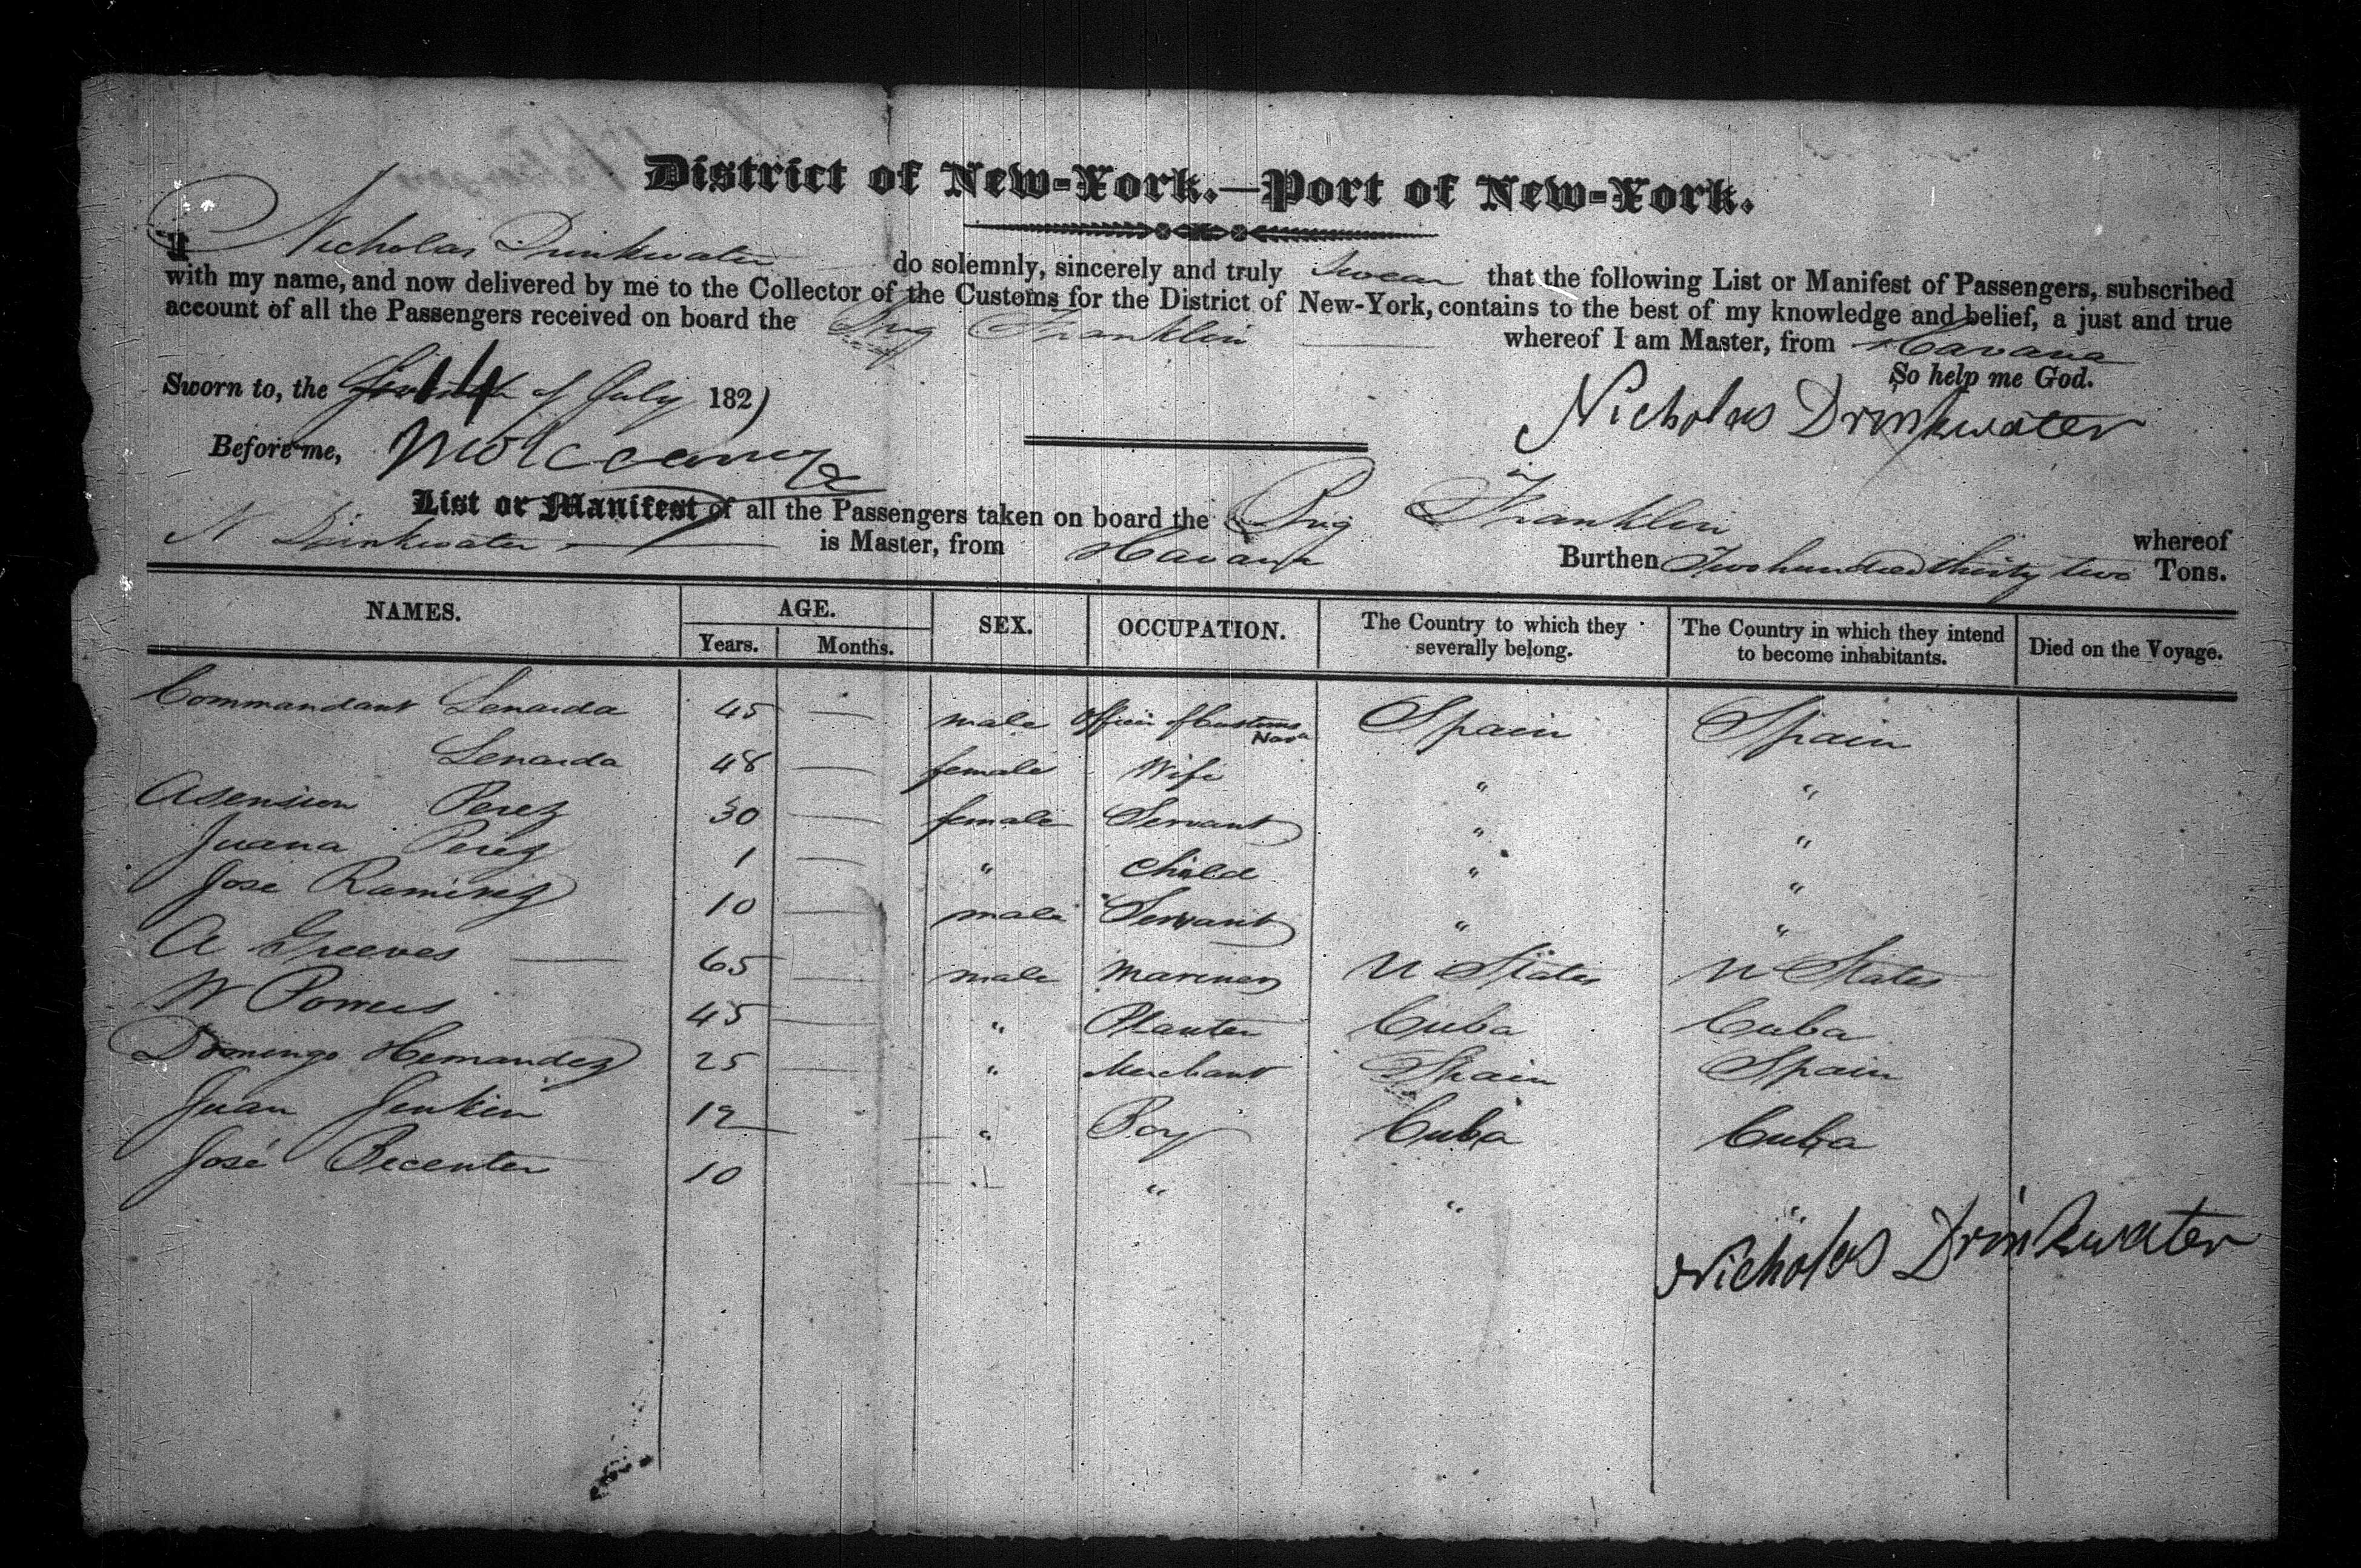 District of New-York.—Port of New-York.
I Nicholas Drinkwater do solemnly, sincerely and truly Swear that the following List or Manifest of Passengers, subscribed
with my name, and now delivered by me to the Collector of the Customs for the District of New-York, contains to the best of my knowledge and belief, a just and true
account of all the Passengers received on board the Brig Franklin whereof I am Master, from Havana
So help me God.
Sworn to, the 14 of July 182)
Nicholas Drinkwater
Before me,
List or Manifest of all the Passengers taken on board the Brig Franklin whereof
N Drinkwater is Master, from Havana Burthen Two hundred thirty two Tons.
NAMES. AGE. SEX. OCCUPATION. The Country to which they severally belong. The Country in which they intend to become inhabitants. Died on the Voyage.
Years. Months.
Commandant Lenarda 45 — male Officer of Customs Spain Spain
Lenarda 48 — female Wife " "
Asension Perez 30 — female Servant " "
Juana Perez 1 — " Child " "
Jose Ramirez 10 — male Servant " "
A Greeves — 65 — male Mariner U States U States
W Powers 45 — " Planter Cuba Cuba
Domingo Hernandez 25 — " Merchant Spain Spain
Juan Jenkin 12 — " Boy Cuba Cuba
José Becenter 10 — " " " "
Nicholas Drinkwater